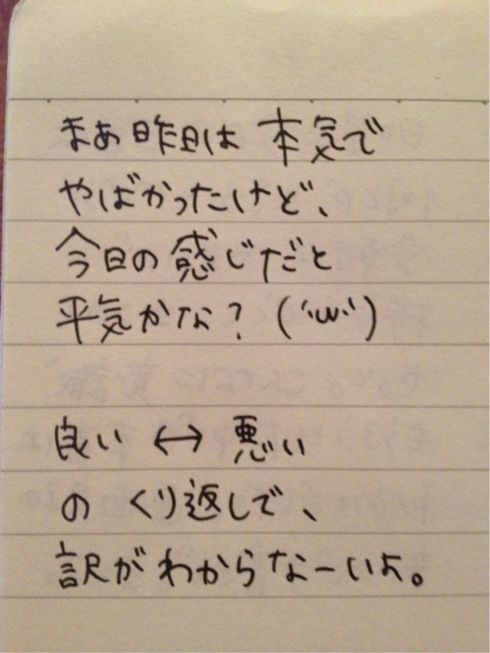 まあ昨日は 本気で
やばかったけど、
今日の感じだと
平気かな？(´ω｀)
良い ↔ 悪い
の くり返しで、
訳がわからなーいよ。